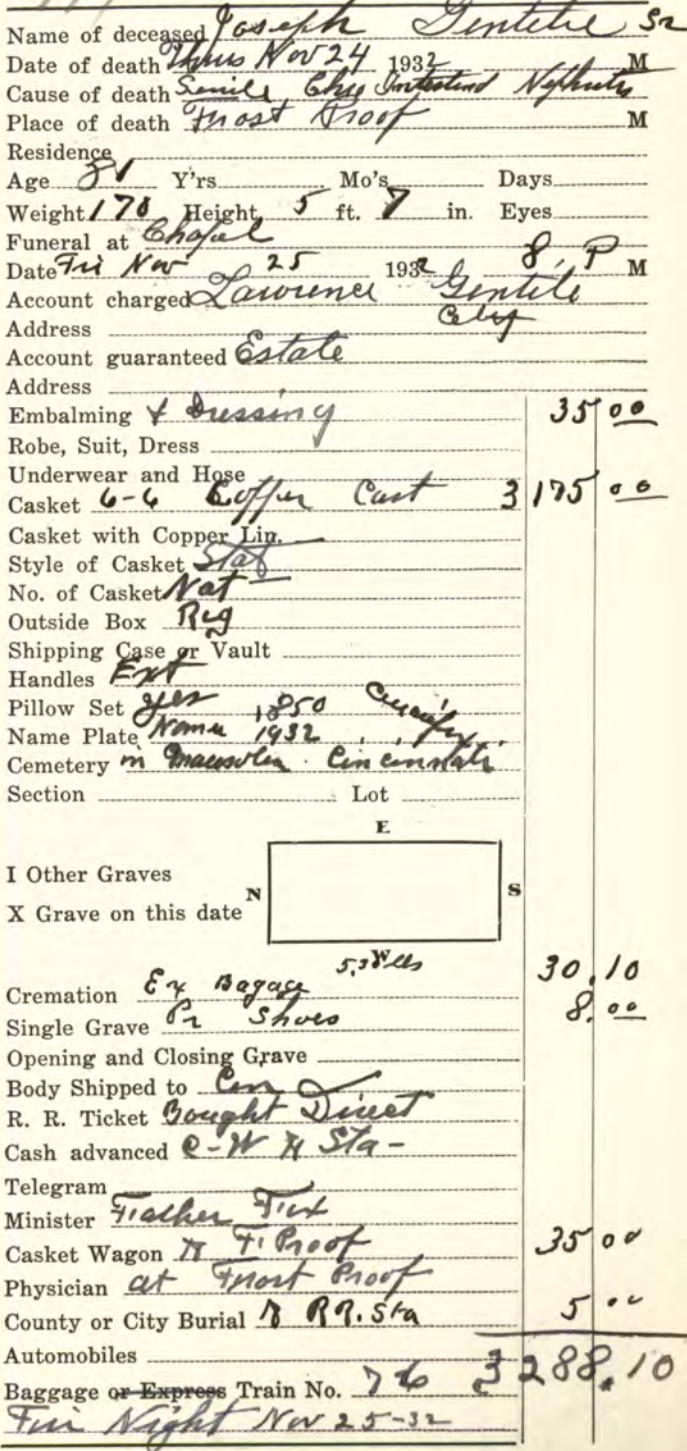 Name of deceased Joseph Gentile Sr
Date of death Thurs Nov 24 1932 M
Cause of death Senile Intestinal
Place of death Frost Proof M
Residence
Age Y'rs Mo's Days
Weight 170 Height 5 ft. 7 in. Eyes
Funeral at Chapel
Date Fri Nov 25 1932 8, P M
Account charged Lawrence Gentile
City
Address
Account guaranteed Estate
Address
Embalming & Dressing 35 00
Robe, Suit, Dress
Underwear and Hose
Casket 6-6 Copper Cast 3 175 00
Casket with Copper Lin.
Style of Casket
No. of Casket Nat
Outside Box Reg
Shipping Case or Vault
Handles Ext
Pillow Set yes 1850 Crucifix
Name Plate Name 1932
Cemetery in Cincinnati
Section Lot
E
I Other Graves
N S
X Grave on this date
W
30.10
Cremation Ex Bagage
Single Grave Pr Shoes 8.00
Opening and Closing Grave
Body Shipped to Cin
R. R. Ticket Bought Direct
Cash advanced Sta-
Telegram
Minister Father
Casket Wagon F. Proof 35 00
Physician at Frost Proof
County or City Burial RR. Sta 5 00
Automobiles
3288.10
Baggage or Express Train No. 76
Fri Night Nov 25-32